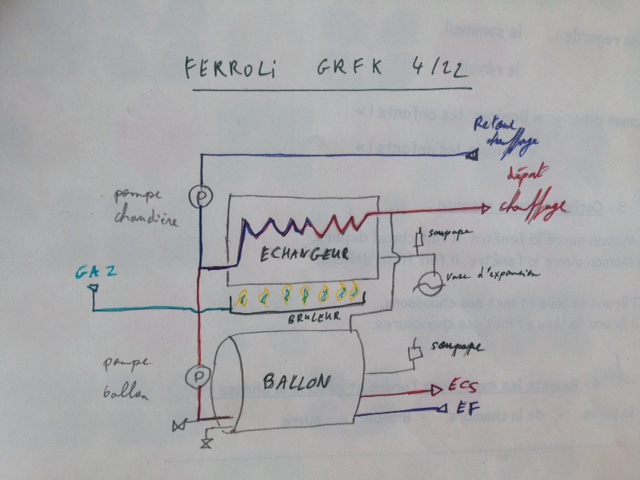 FERROLI GRFK 4/22
Retour
chauffage
départ
chauffage
pompe
chaudière
P
ECHANGEUR
soupape
vase d'expansion
GAZ
BRULEUR
pompe
ballon
P
BALLON
soupape
ECS
EF